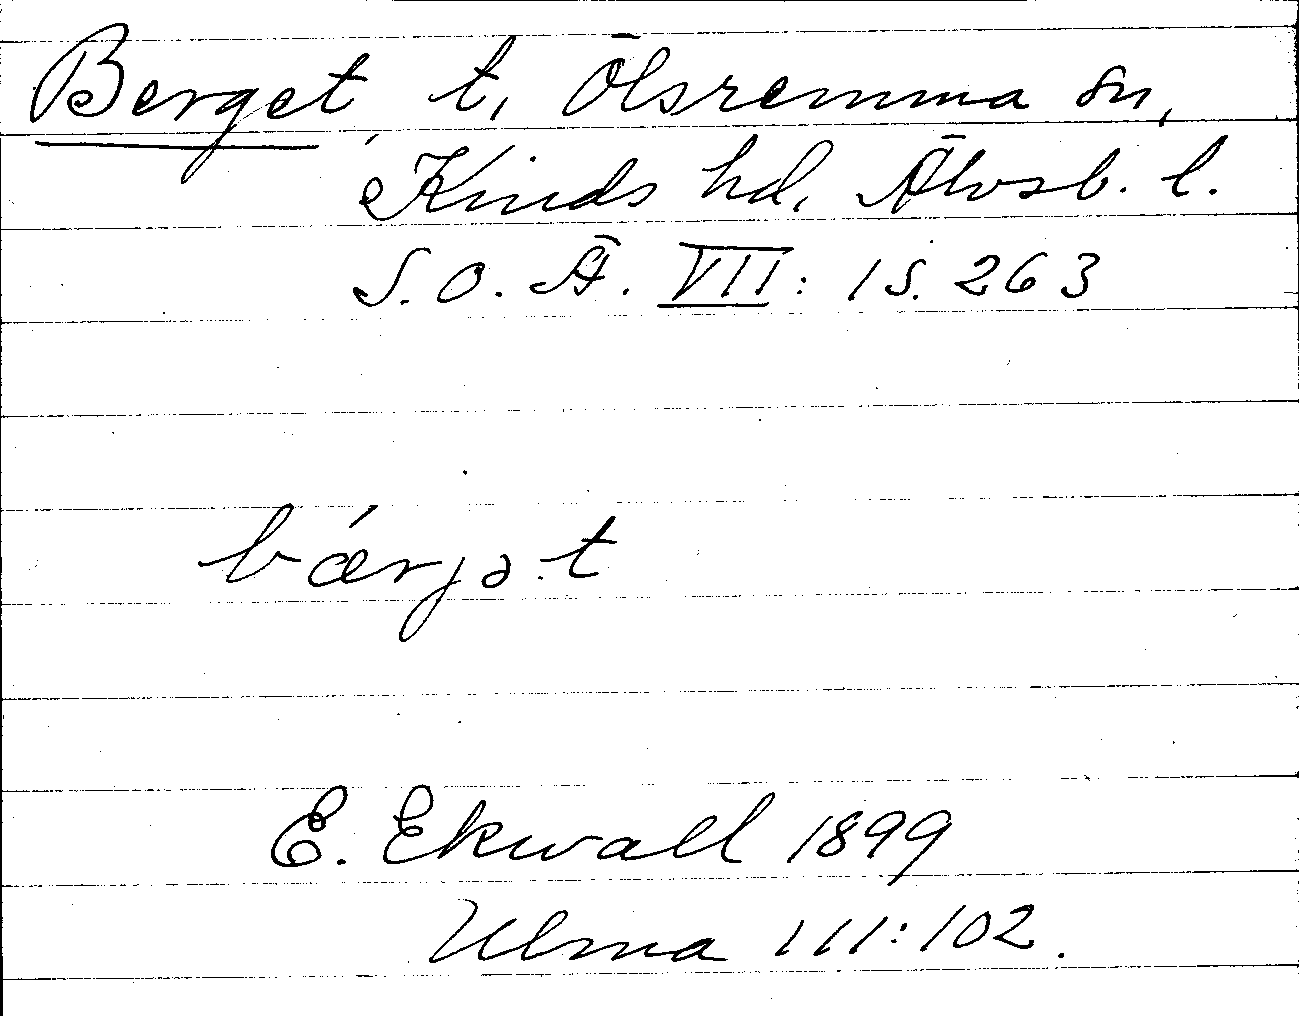 Berget, t, Ölsremma sn,
Kinds hd, Älvsb. l.
S. O. Ä. VII: 1 S. 263
bǽrjət
E. Ekwall 1899
Ulma 111:102.